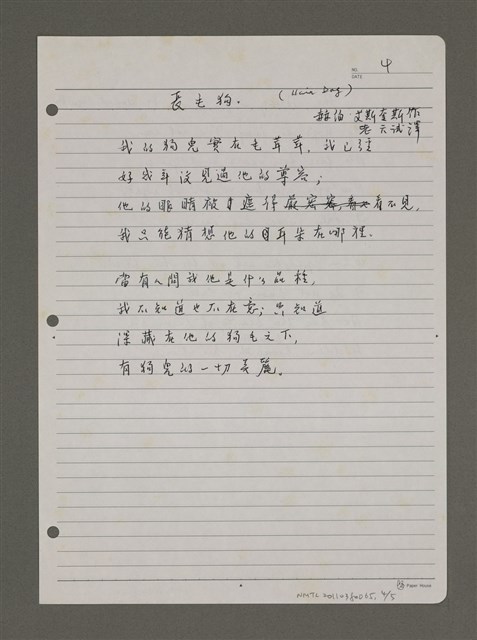 NO. 4
DATE
長毛狗. (Hair Dog)
赫伯 艾斯奎斯作
志誠譯
我的狗兒實在毛茸茸, 我已經
好幾年沒見過他的尊容;
他的眼睛被遮得看不見,
我只能猜想他的耳朵在哪裡.
當有人問我他是什么品種,
我不知道也不在意; 只知道
深藏在他的狗毛之下,
有狗兒的一切美麗。
Paper House
NMTL 20110380035, 4/5